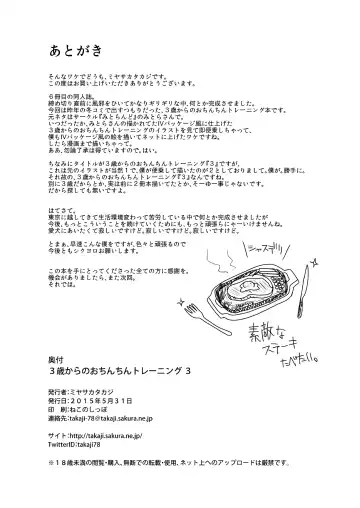 あとがき
そんなワケでどうも、ミヤサカタカジです。
この度はお買い上げいただきありがとうございます。
6冊目の同人誌。
締め切り直前に風邪をひいてかなりギリギリな中、何とか完成させました。
今回は昨年の冬コミで出すつもりだった、3歳からのおちんちんトレーニング本です。
元ネタはサークル『みとらんど』のみとらさんで、
いつだったか、みとらさんの描かれてたIVパッケージ風に仕上げた
3歳からのおちんちんトレーニングのイラストを見て即便乗しちゃって、
僕もIVパッケージ風の絵を描いてネットに上げたワケですね。
したら漫画まで描いちゃって。
ああ、勿論了承は得ていますので。はい。
ちなみにタイトルが3歳からのおちんちんトレーニング『3』ですが、
これは元のイラストが当然1で、僕が便乗して描いたのが2としておりまして。僕が。勝手に。
それ故の、3歳からのおちんちんトレーニング『3』なんですね。
別に3歳だからとか、実は前に2冊本描いてたとか、そーゆー事じゃないです。
だから探しても無いですよ。
はてさて。
東京に越してきて生活環境変わって苦労している中で何とか完成させましたが
今後、もっとこういうことを続けていくためにも、もっと頑張らにゃーいけませんね。
愛犬にあいたくて寂しいですけど。寂しいですけど。寂しいですけど。
とまぁ、早速こんな僕をですが、色々と頑張るので
今後ともシクヨロお願いします。
この本を手にとってくださった全ての方に感謝を。
機会がありましたら、また次回。
それでは。
素敵な
ステーキ
たべたい。
奥付
3歳からのおちんちんトレーニング 3
発行者：ミヤサカタカジ
発行日：2015年5月31日
印　刷：ねこのしっぽ
連絡先：takaji-78@takaji.sakura.ne.jp
サイト：http://takaji.sakura.ne.jp/
TwitterID：takaji78
※18歳未満の閲覧・購入、無断での転載・使用、ネット上へのアップロードは厳禁です。